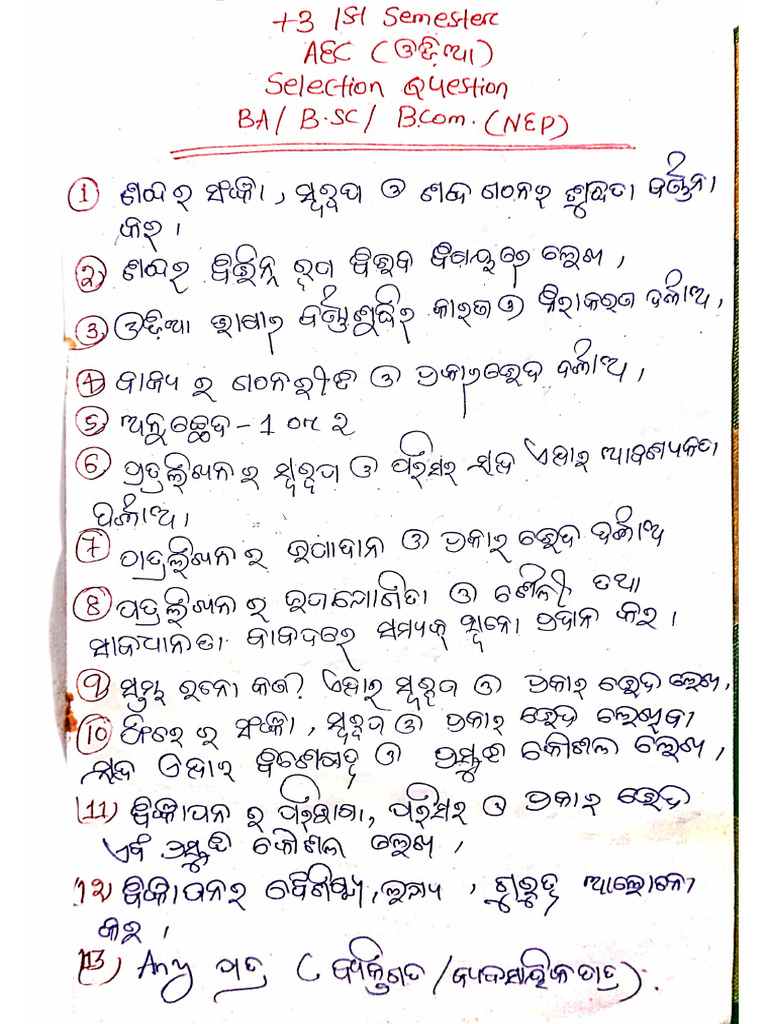 +3 1st Semester
AEC (ଓଡ଼ିଆ)
Selection Question
BA/ B.SC/ B.Com. (NEP)
① ଶବ୍ଦ ର ସଂଜ୍ଞା, ସ୍ୱରୂପ ଓ ଶବ୍ଦ ଗଠନର
କର ।
② ଶବ୍ଦର ବିଭିନ୍ନ ରୂପ ବିଭବ ବିଷୟରେ ଲେଖ,
③ ଓଡ଼ିଆ ଭାଷାର ବର୍ଣ୍ଣାଶୁଦ୍ଧିର କାରଣ ଓ ନିରାକରଣ ଦର୍ଶାଅ,
④ ବାକ୍ୟ ର ଗଠନରୀତି ଓ ପ୍ରକାରଭେଦ ଦର୍ଶାଅ,
⑤ ଅନୁଚ୍ଛେଦ - 1 or ୨
⑥ ପତ୍ରଲିଖନ ର ସ୍ୱରୂପ ଓ ପରିସର ସହ ଏହାର ଆବଶ୍ୟକତା
ଦର୍ଶାଅ।
⑦ ପତ୍ରଲିଖନ ର ଉପାଦାନ ଓ ପ୍ରକାର ଭେଦ ଦର୍ଶାଅ
⑧ ପତ୍ରଲିଖନ ର ଉପଯୋଗିତା ଓ ଶୈଳୀ ତଥା
ସାବଧାନତା ବାବଦରେ ସମ୍ୟକ୍ ସୂଚନା ପ୍ରଦାନ କର ।
⑨ ରଚନା କଣ? ଏହାର ସ୍ୱରୂପ ଓ ପ୍ରକାର ଭେଦ ଲେଖ,
⑩ ଫିଚର ର ସଂଜ୍ଞା, ସ୍ୱରୂପ ଓ ପ୍ରକାର ଭେଦ ଲେଖିବା
ସହ ଏହାର ବିଶେଷତ୍ୱ ଓ ପ୍ରସ୍ତୁତି କୌଶଳ ଲେଖ,
(11) ବିଜ୍ଞାପନ ର ପରିଭାଷା, ପରିସର ଓ ପ୍ରକାର ଭେଦ
ଏବଂ ପ୍ରସ୍ତୁତି କୌଶଳ ଲେଖ,
(12) ବିଜ୍ଞାପନର ବୈଶିଷ୍ଟ୍ୟ, ଲକ୍ଷ୍ୟ, ଗୁରୁତ୍ୱ ଆଲୋଚନା
କର ।
(13) Any ପତ୍ର (ବ୍ୟକ୍ତିଗତ / ବ୍ୟବସାୟିକ ପତ୍ର).